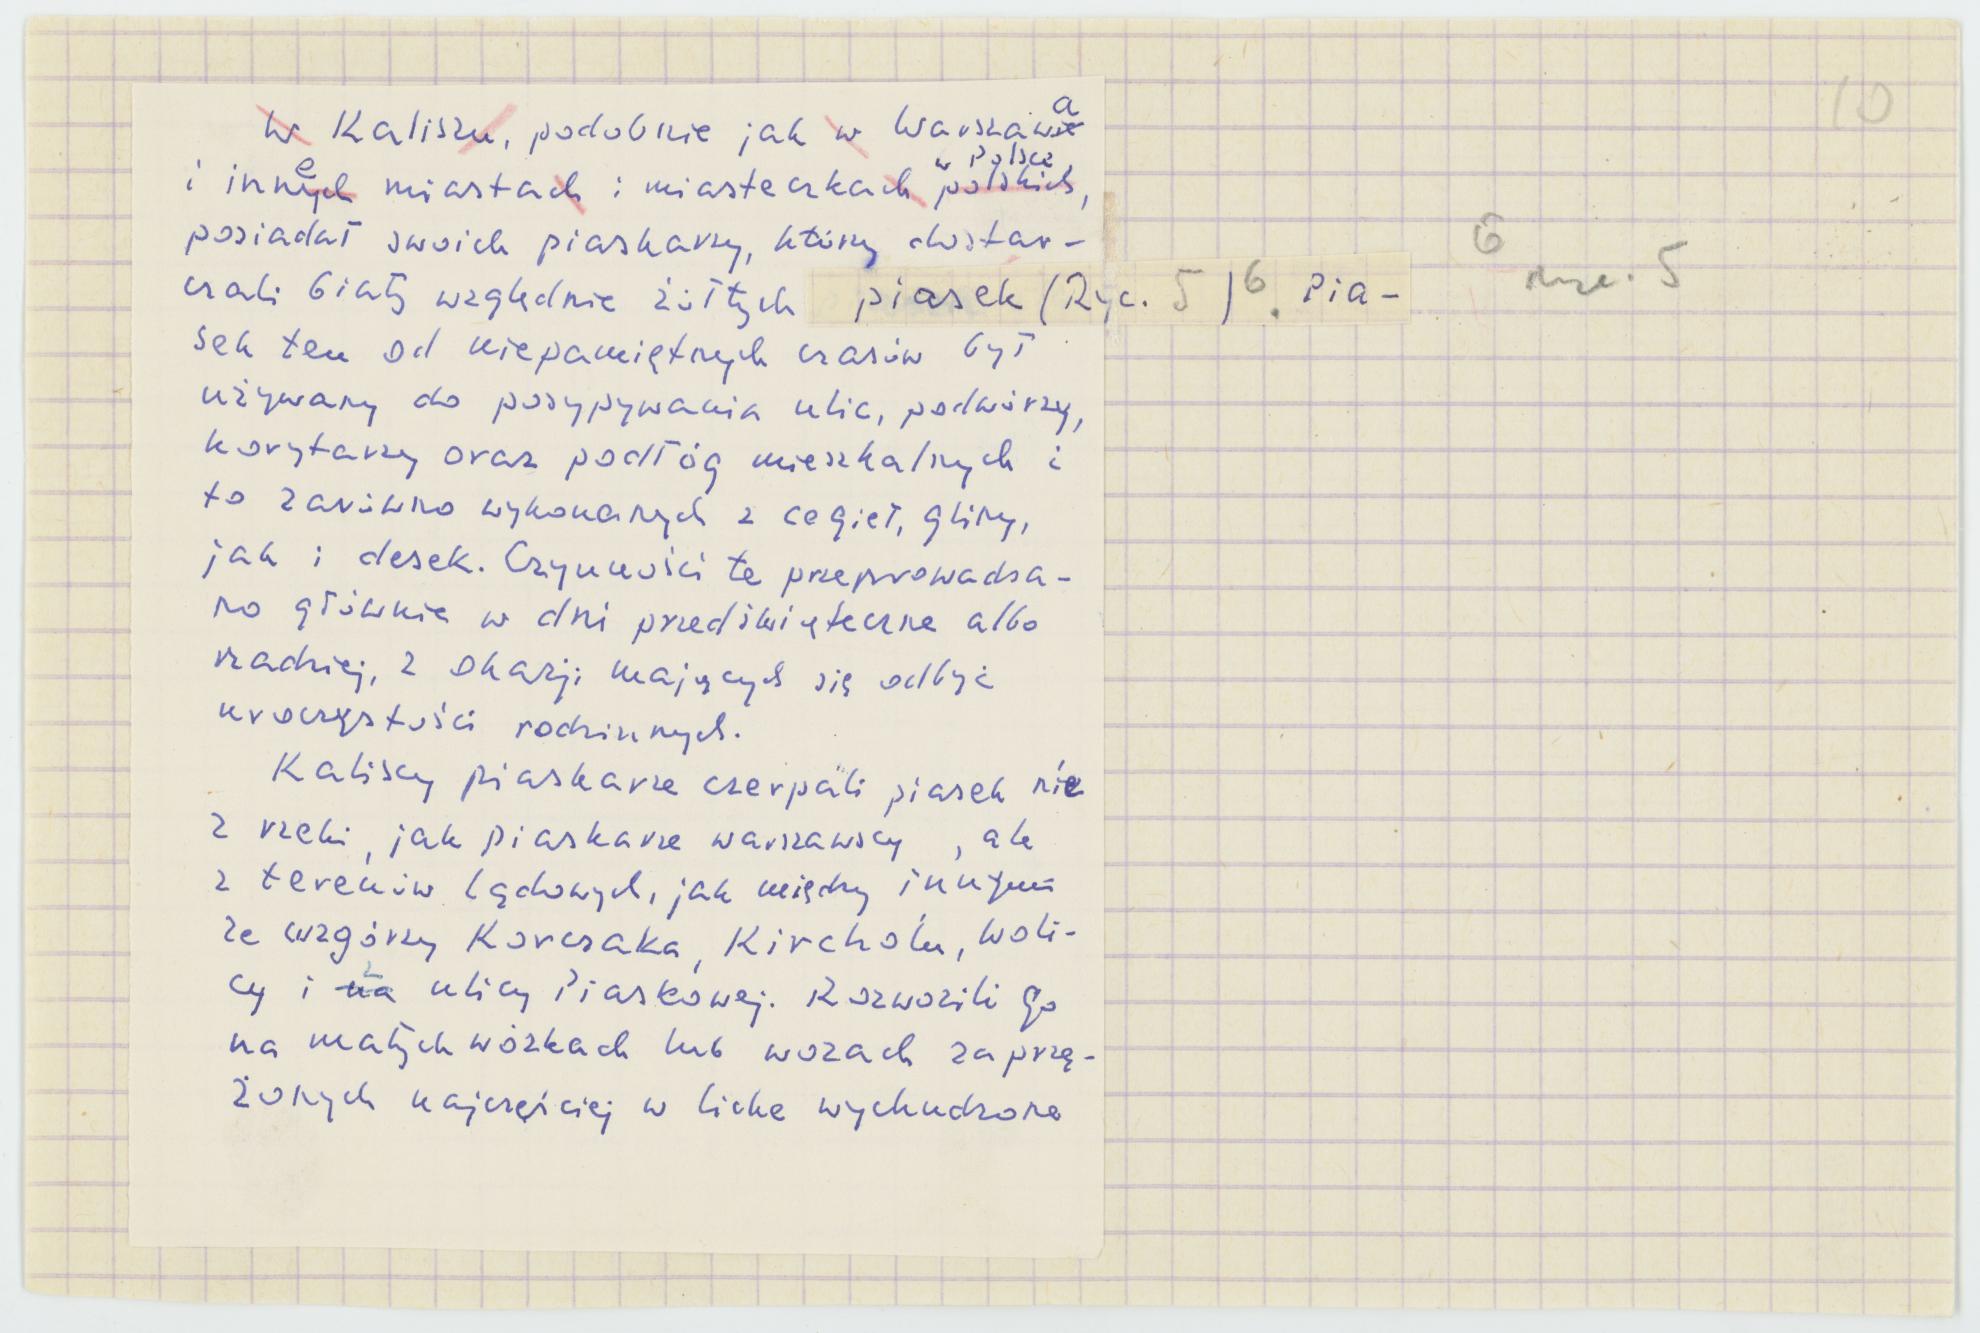 10
W Kaliszu, podobnie jak w Warszawie a
i innych e miastach i miasteczkach polskich w Polsce,
posiadał swoich piaskarzy, którzy dostar-
czali biały względnie żółtych piasek (Ryc. 5)6. Pia-
6 ryc. 5
sek ten od niepamiętnych czasów był
używany do posypywania ulic, podwórzy,
korytarzy oraz podłóg mieszkalnych i
to zarówno wykonanych z cegieł, gliny,
jak i desek. Czynności te przeprowadza-
no głównie w dni przedświąteczne albo
rzadziej, z okazji mających się odbyć
uroczystości rodzinnych.
Kaliscy piaskarze czerpali piasek nie
z rzeki, jak piaskarze warszawscy, ale
z terenów lądowych, jak między innymi
ze wzgórzy Korczaka, Kircholu, Woli-
cy i na z ulicy Piaskowej. Rozwozili go
na małych wózkach lub wozach zaprzę-
żonych najczęściej w liche wychudzone